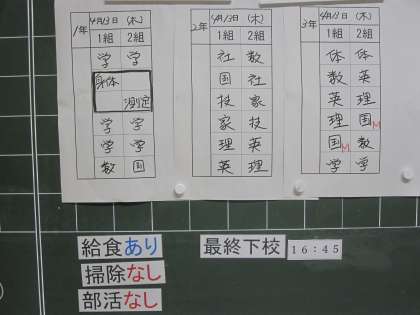 1年
4月13日(木)
1組 2組
学 学
身体
測定
学 学
学 学
数 国
2年
4月13日(木)
1組 2組
社 数
国 社
技 家
家 技
理 英
英 理
3年
4月13日(木)
1組 2組
体 体
数 英
英 理
理 国M
国M 数
学 学
給食あり
掃除なし
部活なし
最終下校 16:45